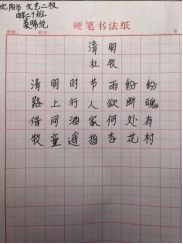 沈阳市 文艺二校
硬笔书法纸
清明
杜牧
清明时节雨纷纷
路上行人欲断魂
借问酒家何处有
牧童遥指杏花村